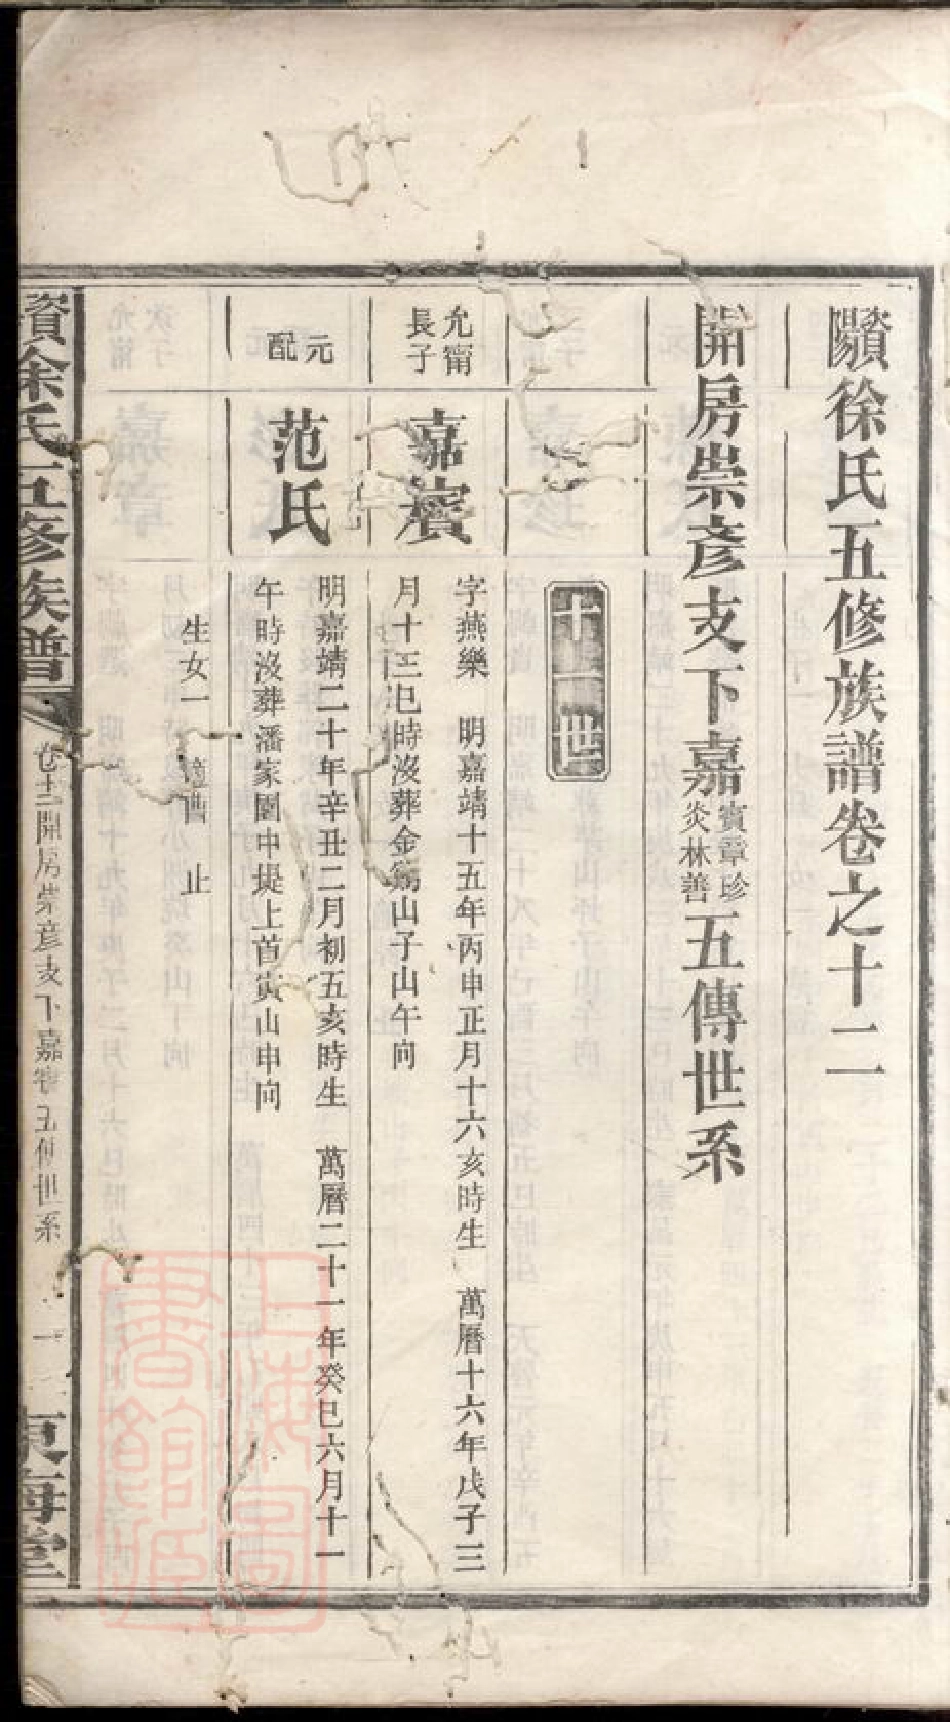 資陽徐氏五修族譜卷之十二
開房崇彥支下嘉賓章珍炎林善五傳世系
十一世
允甯長子
嘉賓
字燕樂 明嘉靖十五年丙申正月十六亥時生 萬曆十六年戊子三
月十三巳時沒葬金鵝山子山午向
元配
范氏
明嘉靖二十年辛丑二月初五亥時生 萬曆二十一年癸巳六月十一
午時沒葬潘家園中堤上首寅山申向
生女一 適曹 止
資徐氏五修族譜
卷十二開房崇彥支下嘉賓五傳世系
一
東海堂
上海圖書館藏